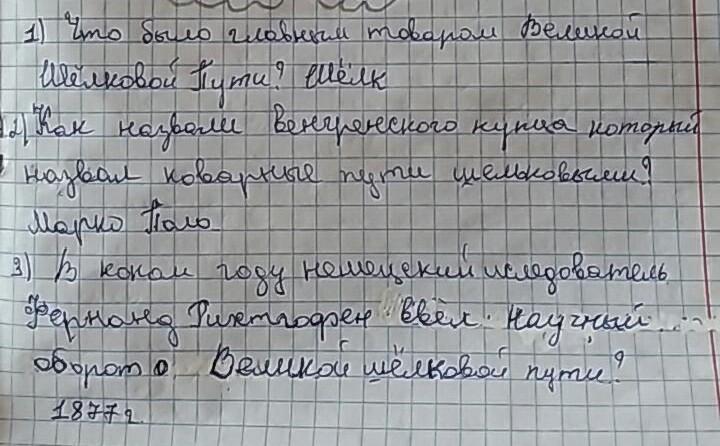 1) Что было главным товаром Великой
Шёлковой Пути? Шёлк
2) Как назвали Венгренского купца который
назвал коварные пути шельковыми?
Марко Поло
3) В каком году немецский иследователь
Фернанд Рихтгофен ввёл научный...
оборот о Великой шёлковой пути?
1877г.